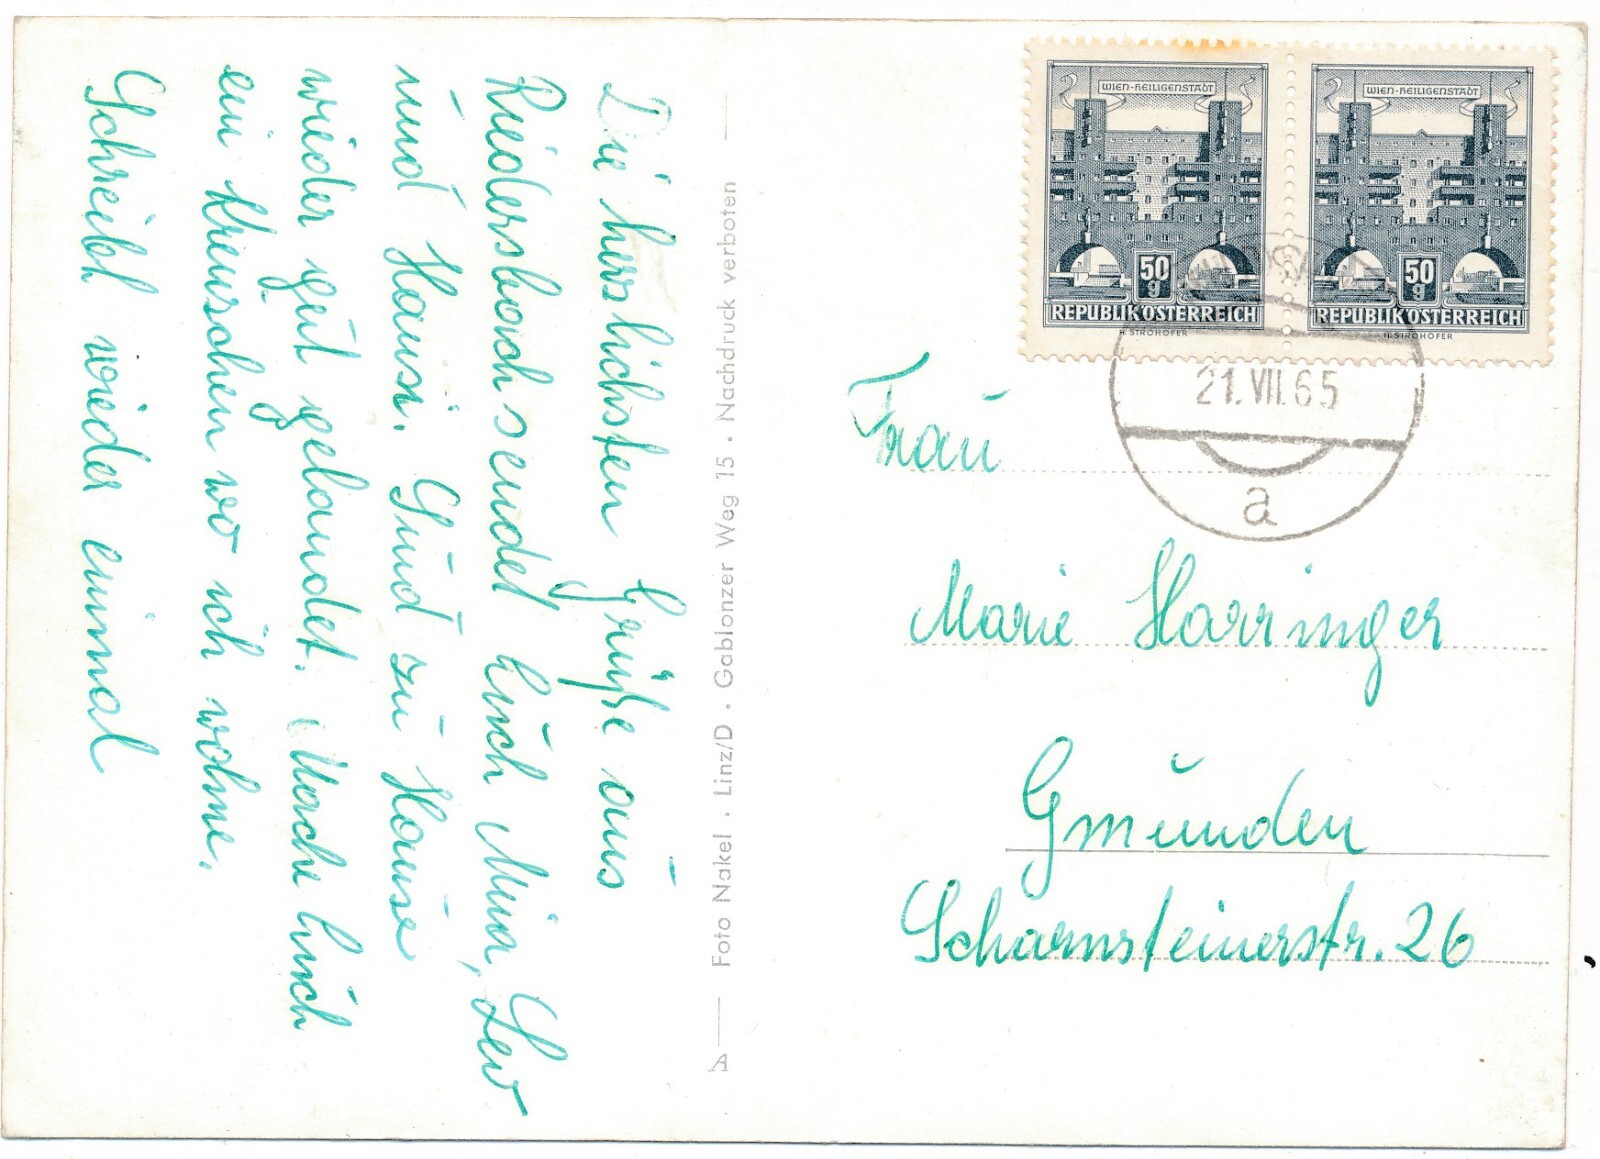 Die herzlichsten Grüße aus
Riedersbach sendet Euch Mina, Leo
und Hansi. Sind zu Hause
wieder gut gelandet. Mache Euch
ein Kreuschen wo ich wohne.
Schreibt wieder einmal
A — Foto Nakel · Linz/D · Gablonzer Weg 15 · Nachdruck verboten —
WIEN-HEILIGENSTADT
50
g
REPUBLIK ÖSTERREICH
H. STROHOFER
WIEN-HEILIGENSTADT
50
g
REPUBLIK ÖSTERREICH
H. STROHOFER
21.VII.65
a
Frau
Marie Harringer
Gmünden
Scharnsteinerstr. 26